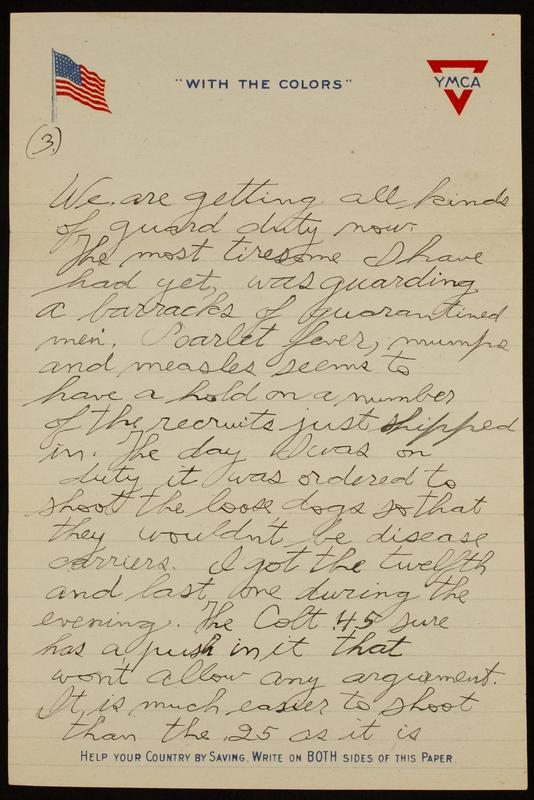 "WITH THE COLORS"
YMCA
(3.)
We are getting all kinds
of guard duty now.
The most tiresome I have
had yet, was guarding
a barracks of quarantined
men. Scarlet fever, mumps
and measles seems to
have a hold on a number
of the recruits just shipped
in. The day I was on
duty it was ordered to
shoot the loose dogs so that
they wouldn't be disease
carriers. I got the twelfth
and last one during the
evening. The Colt .45 sure
has a push in it that
won't allow any arguement.
It is much easier to shoot
than the .25 as it is
HELP YOUR COUNTRY BY SAVING. WRITE ON BOTH SIDES OF THIS PAPER.